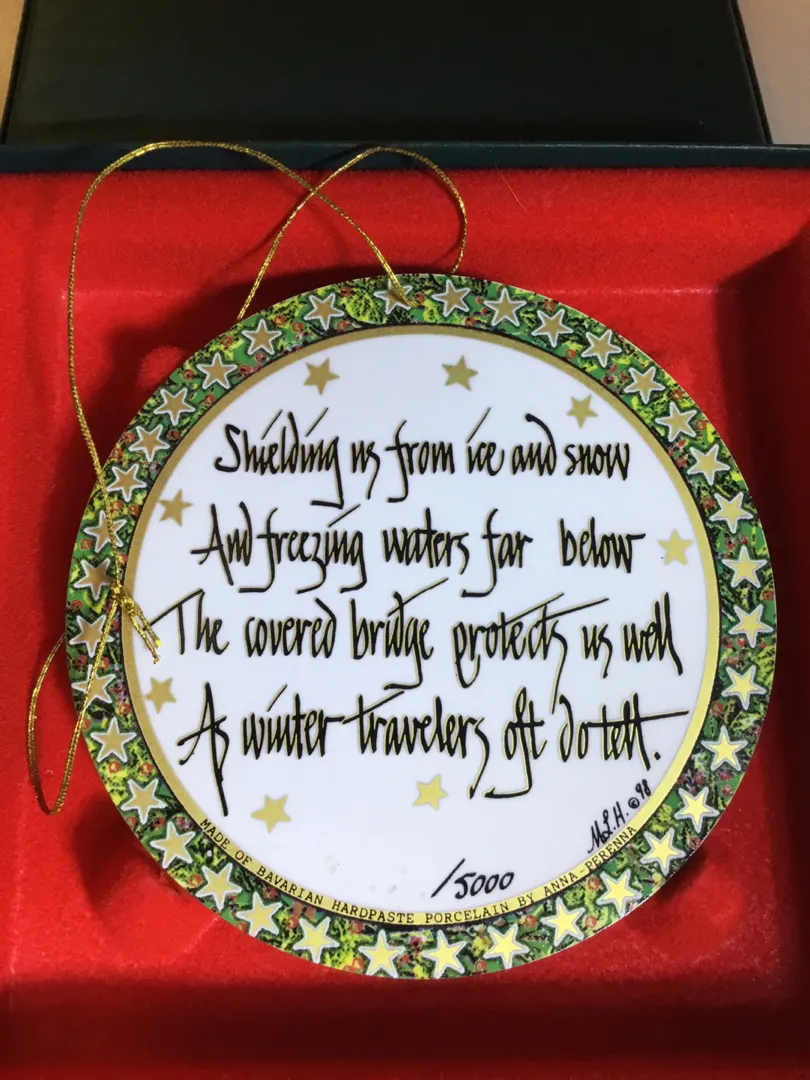 Shielding us from ice and snow
And freezing waters far below
The covered bridge protects us well
As winter travelers oft do tell.
M.L.H. © 98
/5000
MADE OF BAVARIAN HARDPASTE PORCELAIN BY ANNA-PERENNA